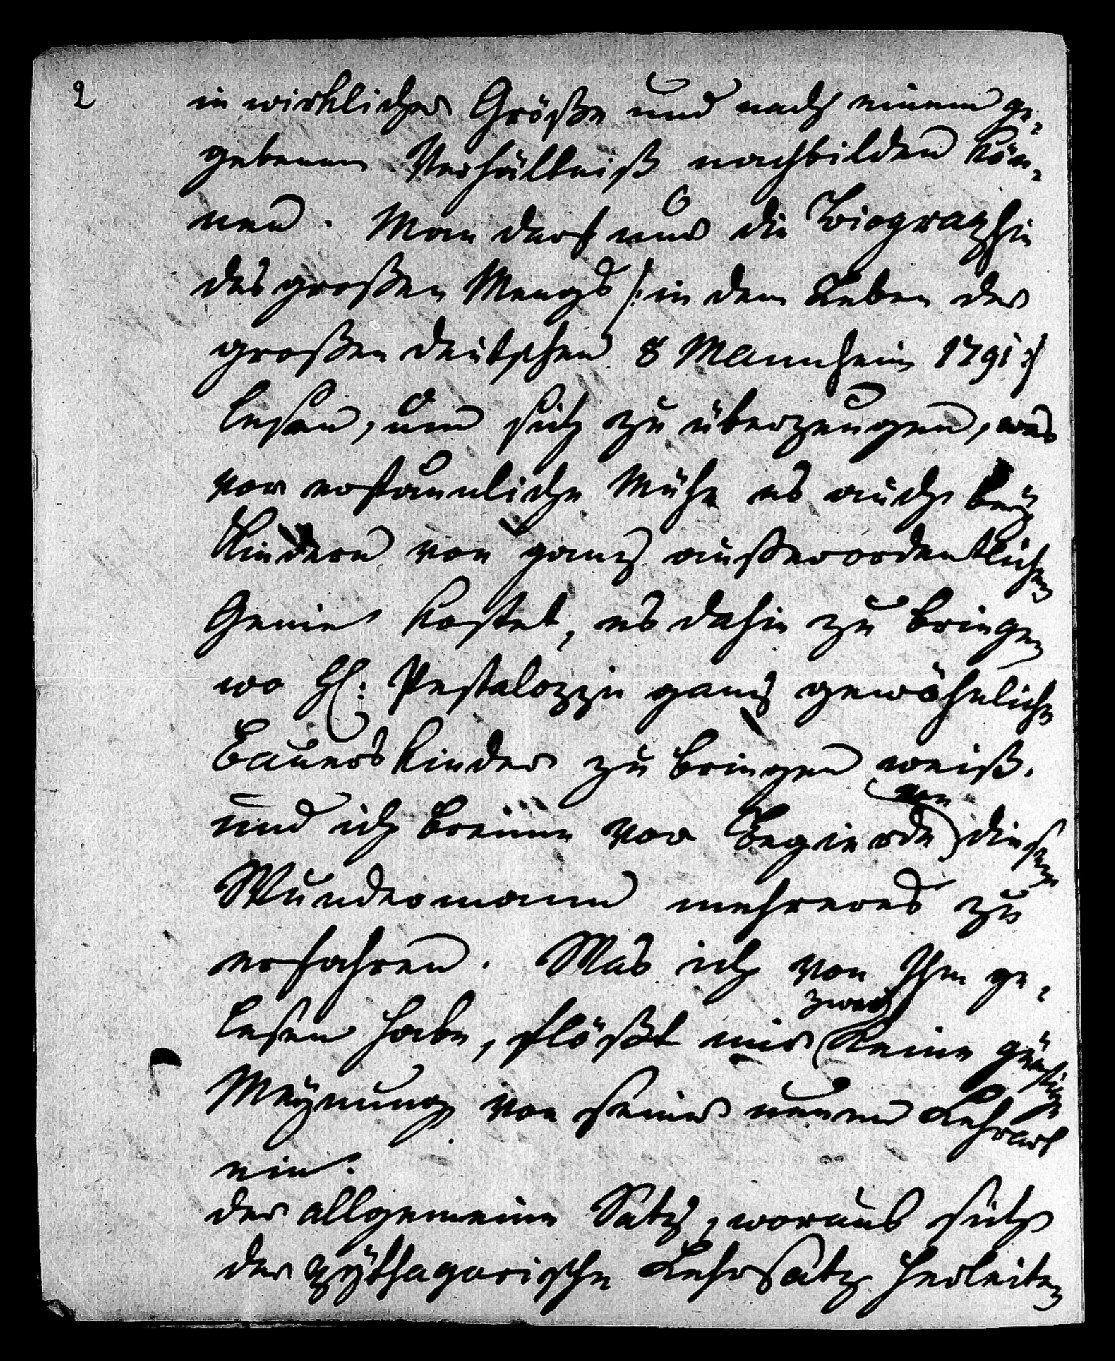 2
in wirklicher Größe und nach einem ge-
gebenen Verhältniß nachbilden kön-
nen. Man darf nur die Biographie
des großen Mengs /: in dem Leben der
großen deutschen 8 Mannheim 1791 :/
lesen, um sich zu überzeugen, was
vor erstaunliche Mühe es auch bey
Kindern von ganz außerordentlichem
Genie kostet, es dahin zu bringen
wo H: Pestalozzi ganz gewöhnliche
Bauers Kinder zu bringen weiß.
von
und ich brenne vor Begierde diesem
Wundermann mehreres zu
erfahren. Was ich von Ihm ge-
zwar
lesen habe, flößt mir keine günstige
Meynung von seiner neuen Lehrart
ein.
der allgemeine Satz, woraus sich
der pythagorische Lehrsatz herleiten